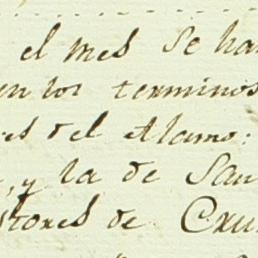 el mes se ha
en los terminos
es del Alamo:
, y la de San
stores de Cru